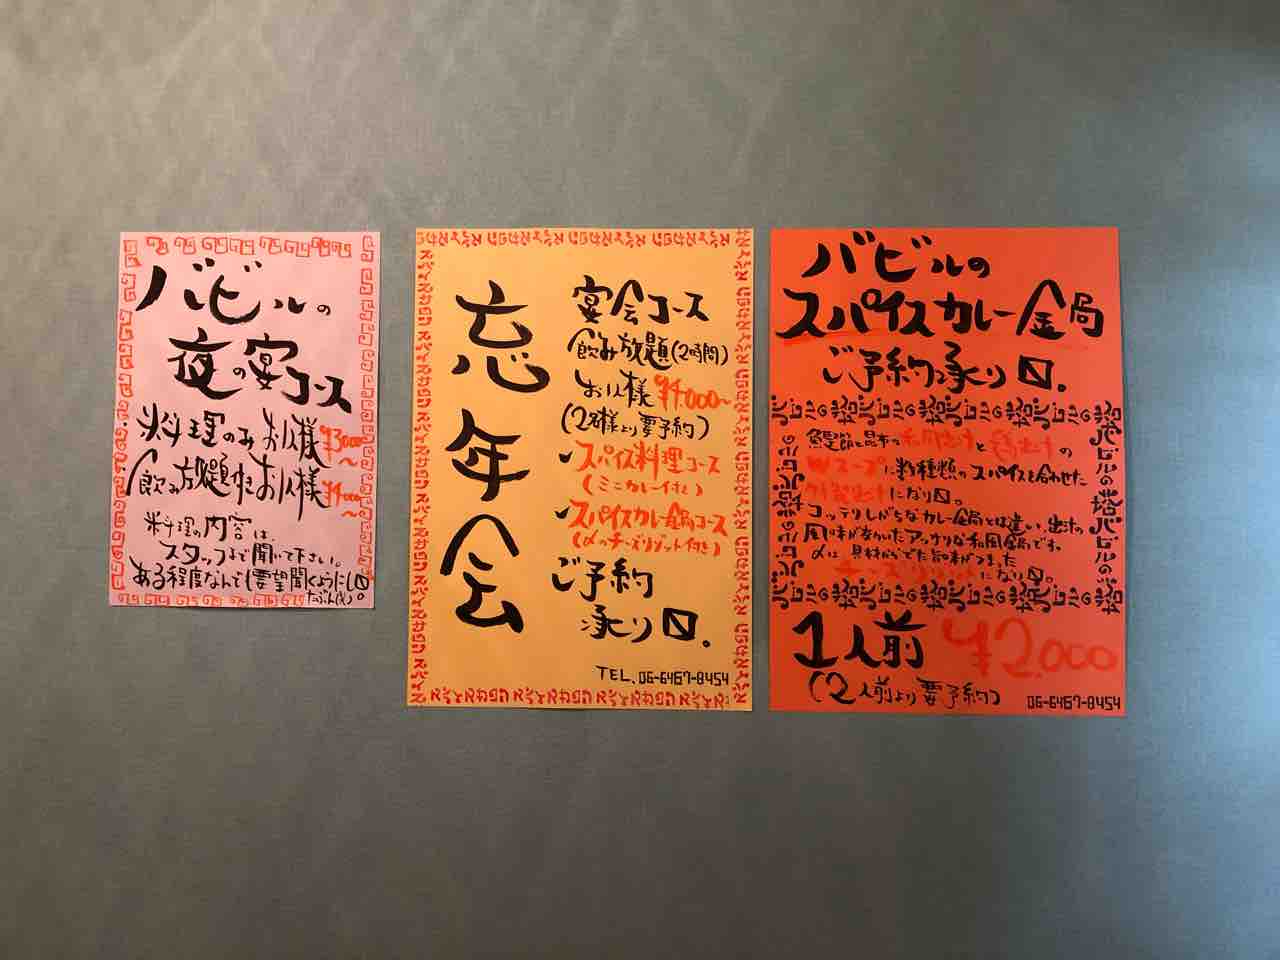 バビルの
夜の宴コース
料理のみ お1人様 ¥3000〜
飲み放題付き お1人様 ¥4000〜
料理の内容は、
スタッフまで聞いて下さい。
ある程度なんでも要望聞くように〼
たぶん(笑)。
忘年会
宴会コース
飲み放題(2時間)
お1人様 ¥4000〜
(2名様より要予約)
スパイス料理コース
(ミニカレー付き)
スパイスカレー鍋コース
(〆のチーズリゾット付き)
ご予約
承り〼。
TEL.06-6467-8454
バビルの
スパイスカレー鍋
ご予約承り〼。
鰹節と昆布の和風出汁と鶏出汁の
Wスープに数種類のスパイスを合わせた
特製出汁になり〼。
コッテリしがちなカレー鍋とは違い、出汁の
風味が効いたアッサリな和風鍋です。
〆は、具材からでた旨味がつまった
チーズリゾットになり〼。
1人前 ¥2.000
(2人前より要予約)
06-6467-8454